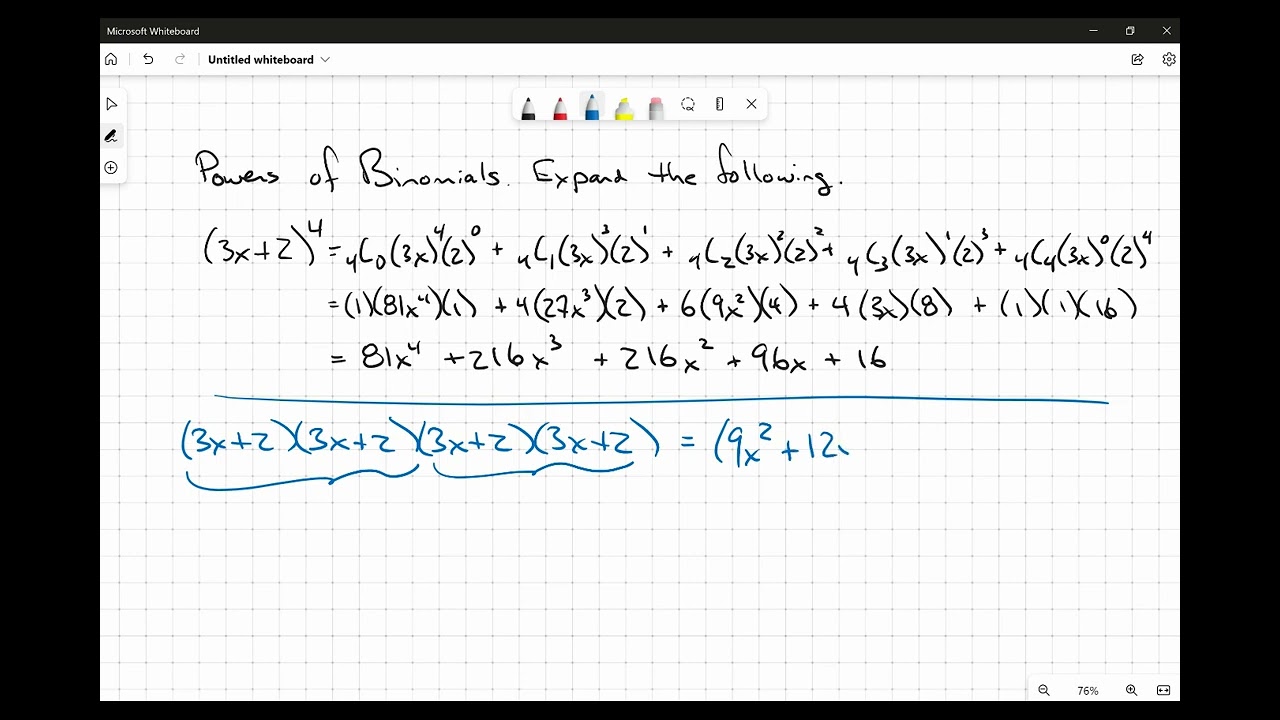 Microsoft Whiteboard
Untitled whiteboard
Powers of Binomials. Expand the following.
(3x+2)⁴ = ₄C₀(3x)⁴(2)⁰ + ₄C₁(3x)³(2)¹ + ₄C₂(3x)²(2)² + ₄C₃(3x)¹(2)³ + ₄C₄(3x)⁰(2)⁴
= (1)(81x⁴)(1) + 4(27x³)(2) + 6(9x²)(4) + 4(3x)(8) + (1)(1)(16)
= 81x⁴ + 216x³ + 216x² + 96x + 16
(3x+2)(3x+2)(3x+2)(3x+2) = (9x² + 12
76%